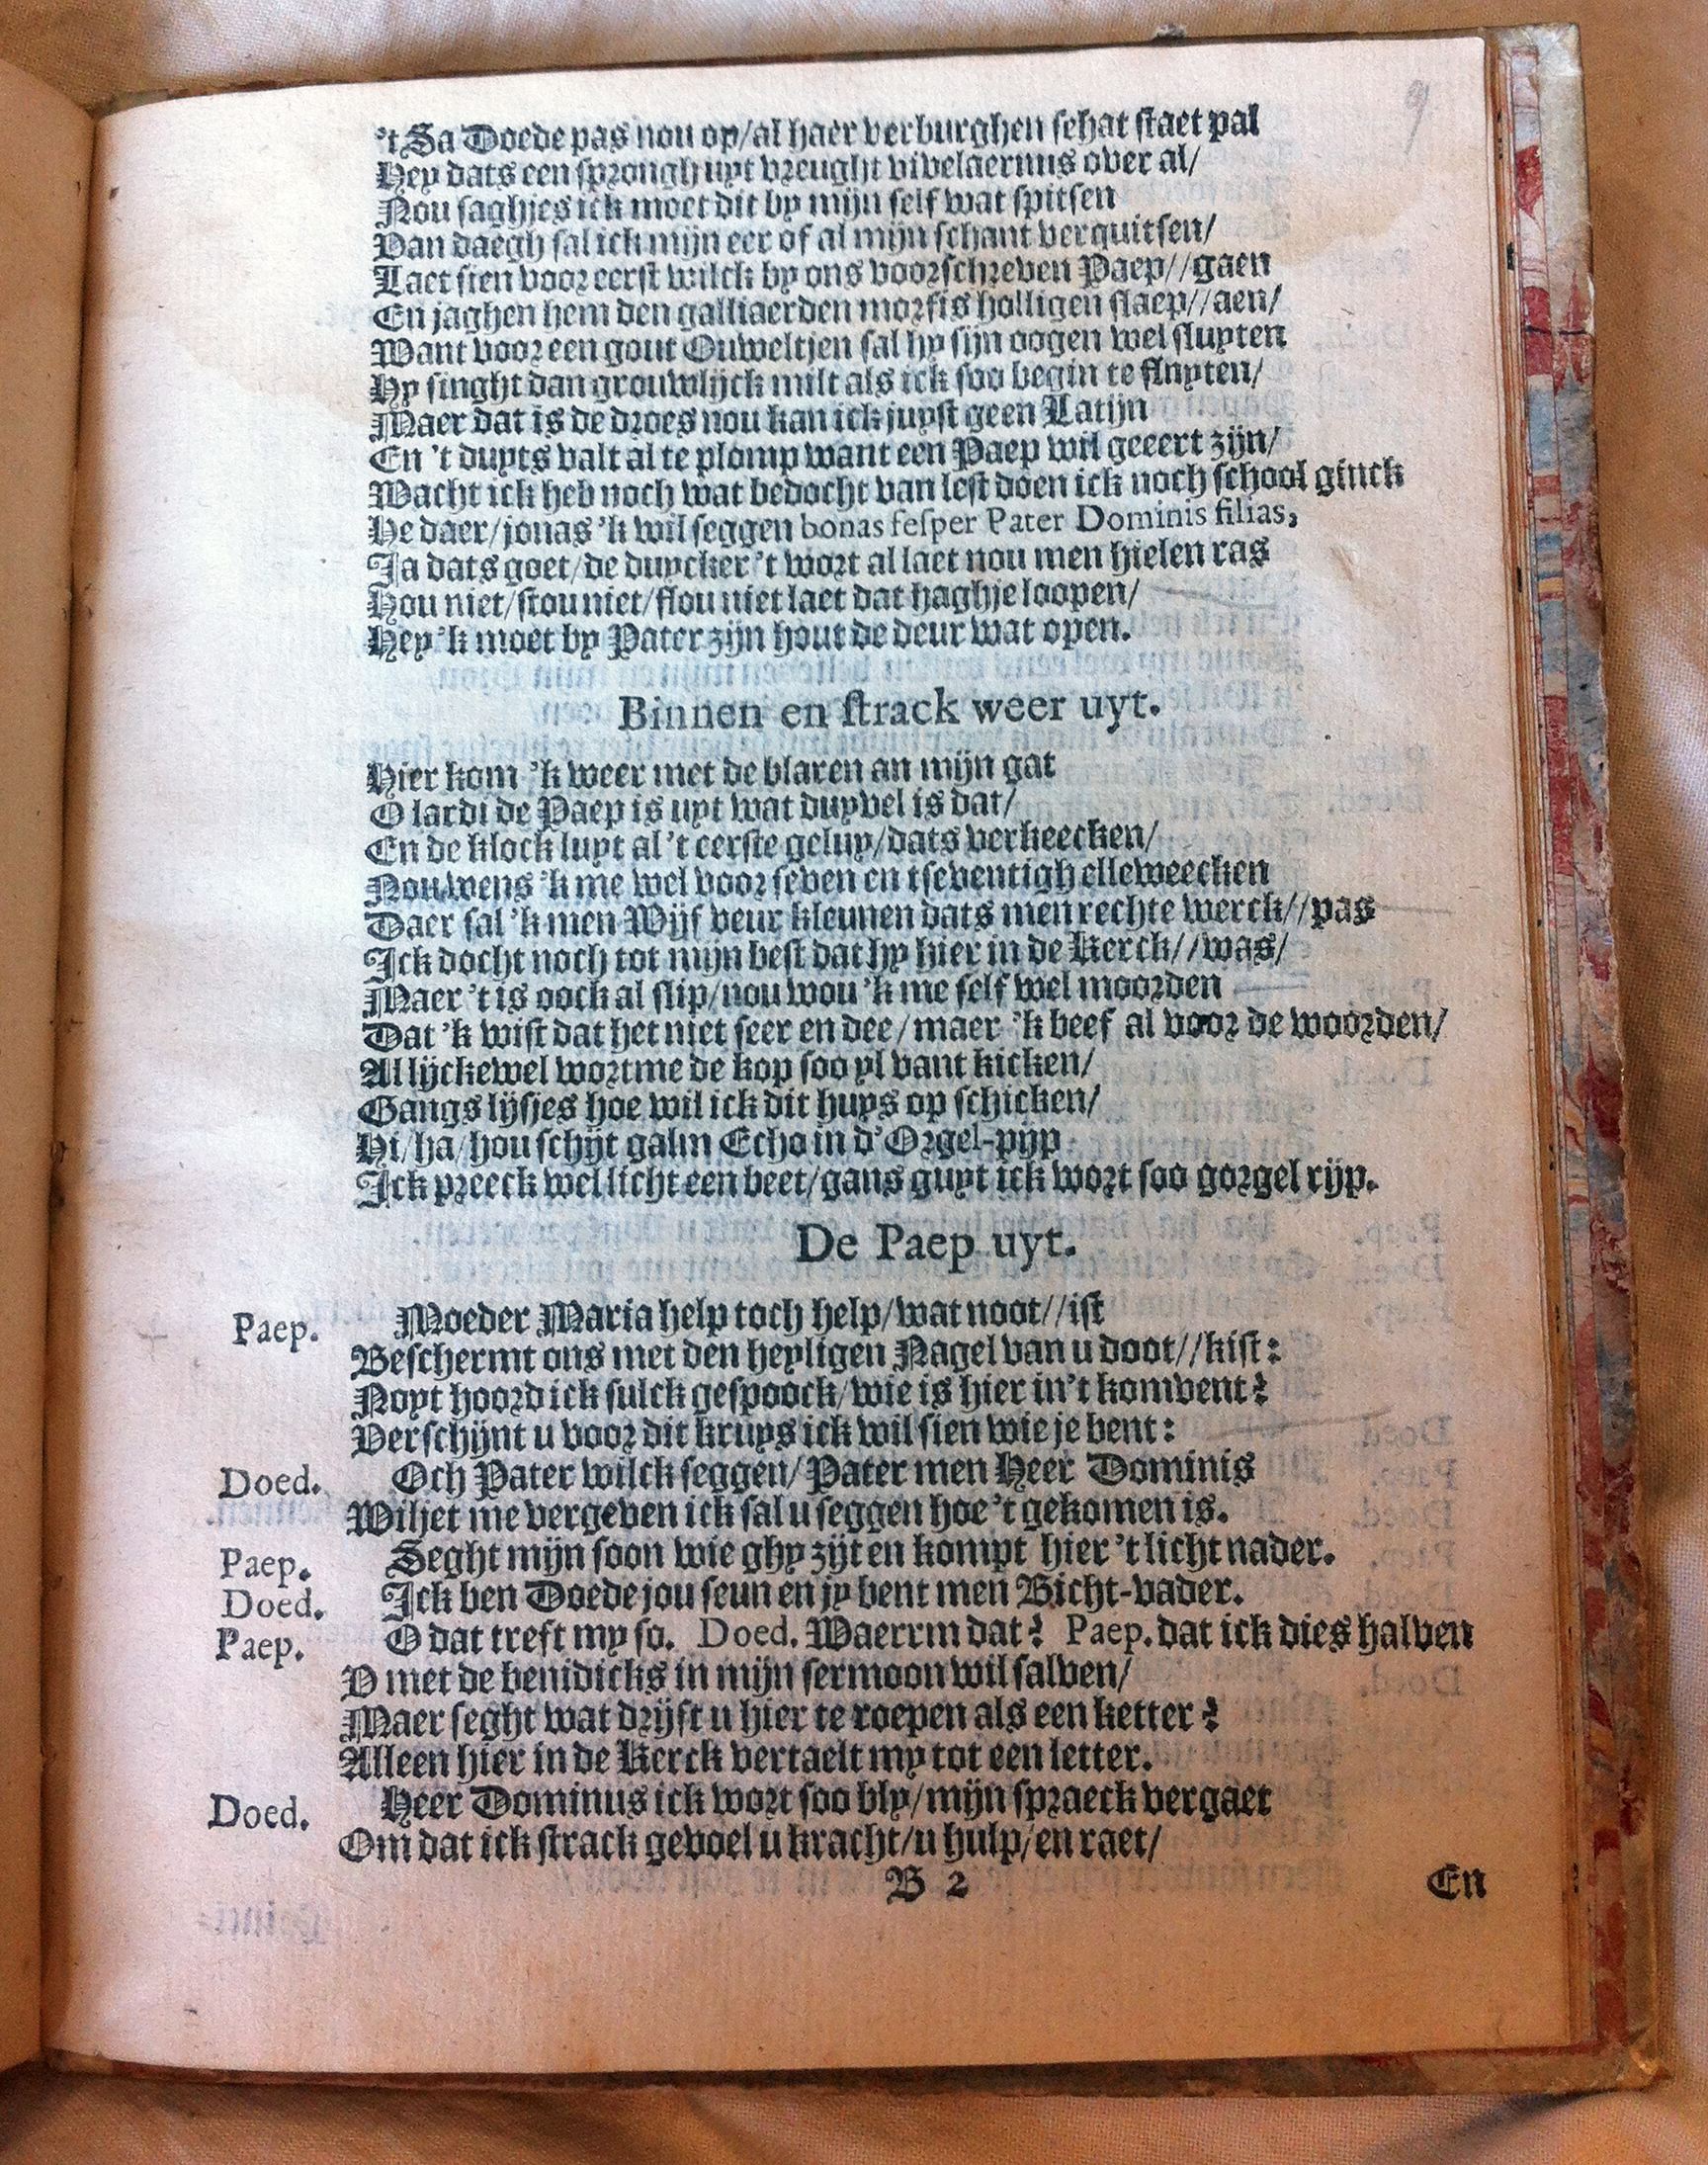 9
't Sa Doede pas nou op/al haer verburghen schat staet pal
Hey dats een sprongh uyt vreught vivelaermus over al/
Nou saghjes ick moet dit by mijn self wat spitsen
Van daegh sal ick mijn eer of al mijn schant verquitsen/
Laet sien voor eerst wilck by ons voorschreven Paep//gaen
En jaghen hem den galliaerden morfis holligen slaep//aen/
Want voor een gout Ouweltjen sal hy sijn oogen wel sluyten
Hy singht dan grouwlijck milt als ick soo begin te fluyten/
Maer dat is de droes nou kan ick juyst geen Latijn
En 't duyts valt al te plomp want een Paep wil geeert zijn/
Wacht ick heb noch wat bedocht van lest doen ick noch school ginck
He daer/jonas 'k wil seggen bonas fesper Pater Dominis filias,
Ja dats goet/de duycker 't wort al laet nou men hielen ras
Hou niet/stou niet/flou niet laet dat haghje loopen/
Hey 'k moet by Pater zijn hout de deur wat open.
Binnen en strack weer uyt.
Hier kom 'k weer met de blaren an mijn gat
O lardi de Paep is uyt wat duyvel is dat/
En de klock luyt al 't eerste geluy/dats verkeecken/
Nou wens 'k me wel voor seven en tseventigh elleweecken
Daer sal 'k men Wijf veur kleunen dats men rechte werck//pas
Ick docht noch tot mijn best dat hy hier in de Kerck//was/
Maer 't is oock al slip/nou wou 'k me self wel moorden
Dat 'k wist dat het niet seer en dee/maer 'k beef al voor de woorden/
Al lijckewel wortme de kop soo yl vant kicken/
Gangs lijsjes hoe wil ick dit huys op schicken/
Hi/ha/hou schijt galm Echo in d'Orgel-pijp
Ick preeck wel licht een beet/gans guyt ick wort soo gorgel rijp.
De Paep uyt.
Paep. Moeder Maria help toch help/wat noot//ist
Beschermt ons met den heyligen Nagel van u doot//kist:
Noyt hoord ick sulck gespoock/wie is hier in't konvent?
Verschijnt u voor dit kruys ick wil sien wie je bent:
Doed. Och Pater wilck seggen/Pater men Heer Dominis
Wiljet me vergeven ick sal u seggen hoe 't gekomen is.
Paep. Seght mijn soon wie ghy zijt en kompt hier 't licht nader.
Doed. Ick ben Doede jou seun en jy bent men Bicht-vader.
Paep. O dat treft my so. Doed. Waerrm dat? Paep. dat ick dies halven
V met de benidicks in mijn sermoon wil salven/
Maer seght wat drijft u hier te roepen als een ketter?
Alleen hier in de Kerck vertaelt my tot een letter.
Doed. Heer Dominus ick wort soo bly/mijn spraeck vergaet
Om dat ick strack gevoel u kracht/u hulp/en raet/
B 2 En